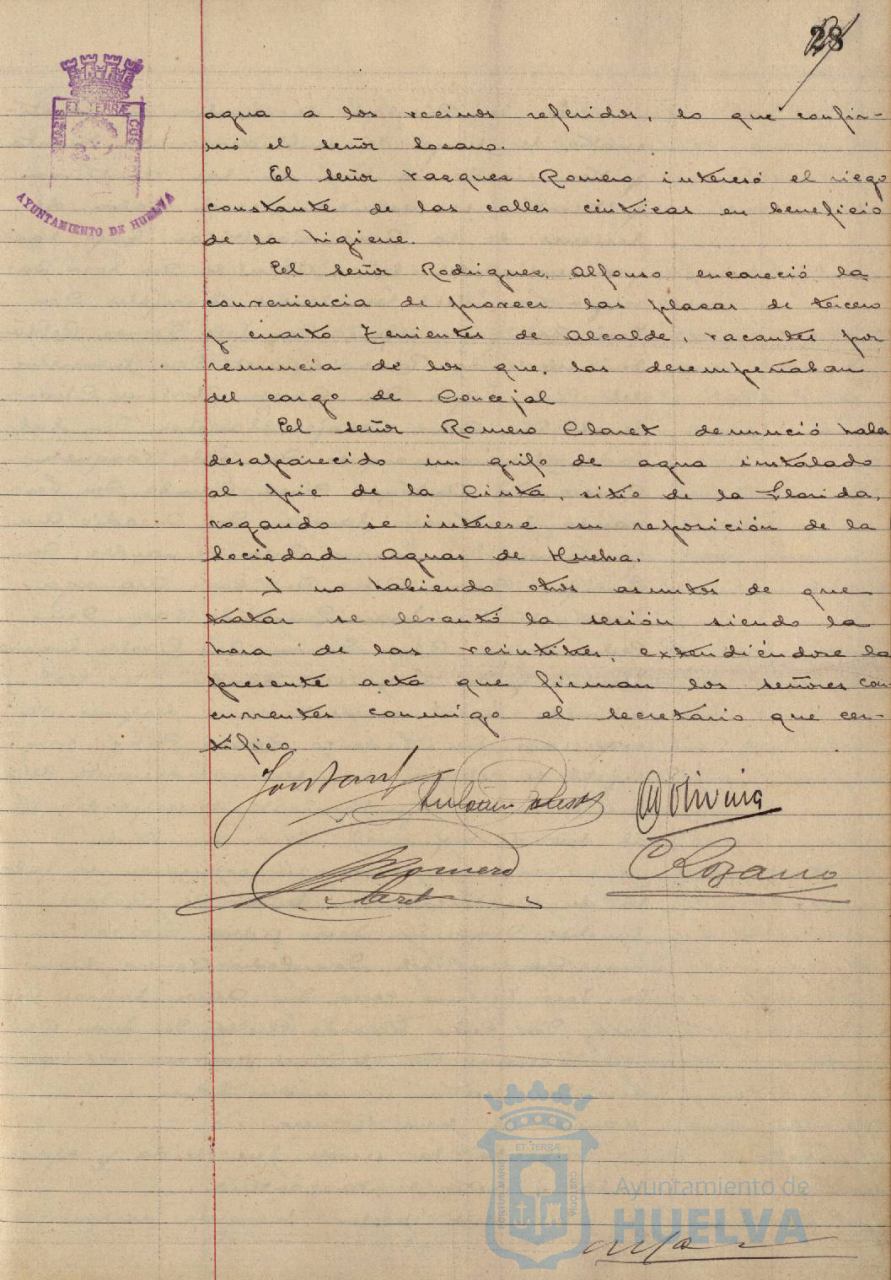 28
ET TERRÆ
AYUNTAMIENTO DE HUELVA
agua a los vecinos referidos, lo que confir-
mó el señor Lozano.
El señor Vazquez Romero interesó el riego
constante de las calles céntricas en beneficio
de la higiene.
El señor Rodriguez Alfonso encareció la
conveniencia de proveer las plazas de tercero
y cuarto Tenientes de Alcalde, vacantes por
renuncia de los que, las desempeñaban
del cargo de Concejal
El señor Romero Claret denunció haber
desaparecido un grifo de agua instalado
al pie de la Cinta, sitio de la Florida,
rogando se interese su reposición de la
Sociedad Aguas de Huelva.
Y no habiendo otros asuntos de que
tratar se levantó la sesión siendo la
hora de las veintitres, extendiéndose la
presente acta que firman los señores con-
currentes conmigo el secretario que cer-
tifico
Oliveira
Romero
Claret
C Lozano
ET TERRÆ
Ayuntamiento de
HUELVA